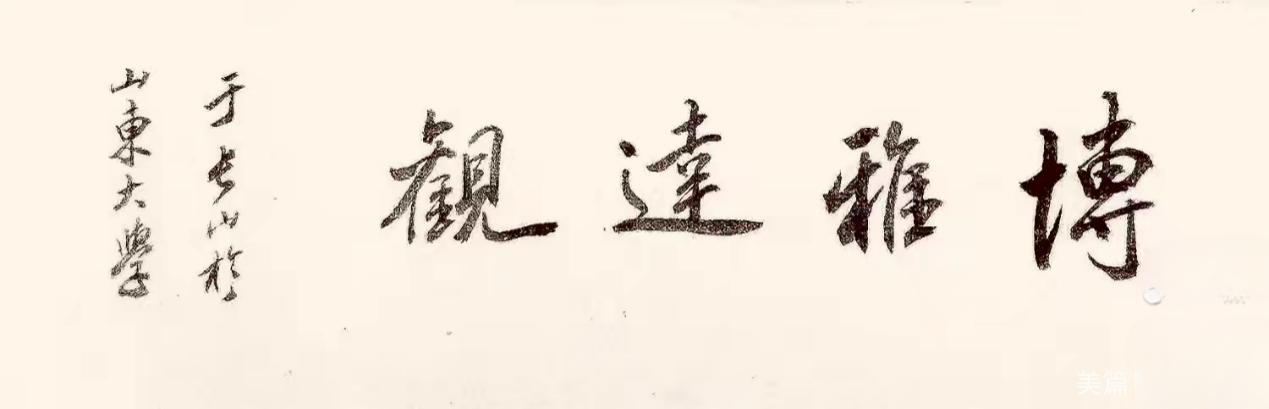 博雅達觀
于長山於
山東大學
美篇